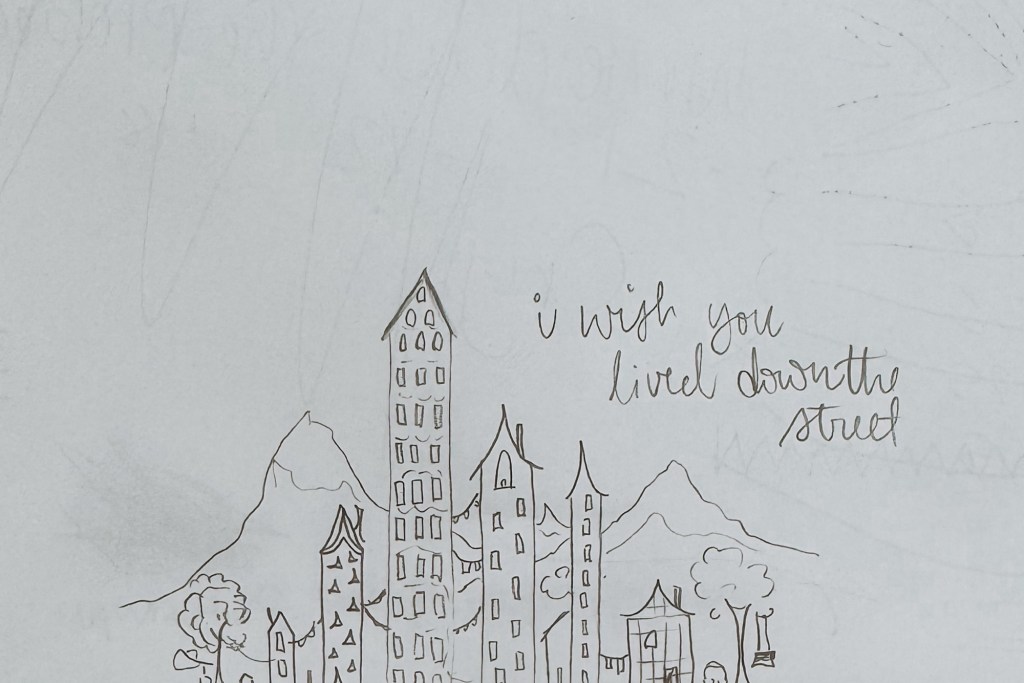 i wish you
lived down the
street